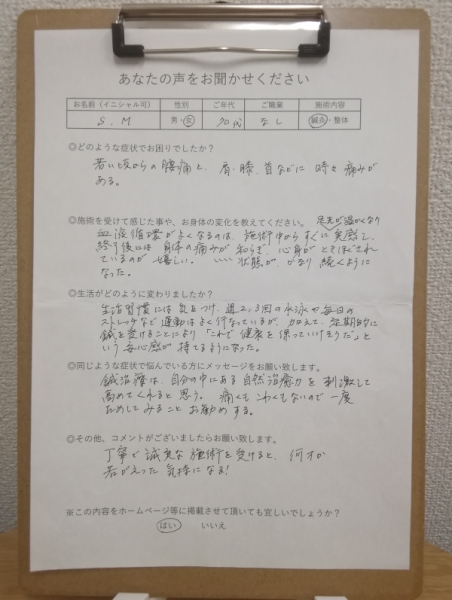 あなたの声をお聞かせください
お名前（イニシャル可） 性別 ご年代 ご職業 施術内容
S.M 男・女 70代 なし 鍼灸・整体
◎どのような症状でお困りでしたか？
若い頃からの腰痛と、肩・膝、首などに 時々 痛みが
ある。
◎施術を受けて感じた事や、お身体の変化を教えてください。
足先が温かくなり
血液循環がよくなるのは、施術中からすぐに実感し、
終了後には 身体の痛みが 和らぎ、心身が ときほぐされ
ているのが 嬉しい。 いい状態が、かなり 続くように
なった。
◎生活がどのように変わりましたか？
生活習慣には 気をつけ、週2,3回の水泳や毎日の
ストレッチなど 運動は よく行なっているが、加えて、定期的に
鍼を受けることにより 「これで 健康を 保っていけそうだ」と
いう 安心感が 持てるようになった。
◎同じような症状で悩んでいる方にメッセージをお願い致します。
鍼治療は、自分の中にある 自然治癒力を 刺激して
高めてくれると 思う。 痛くも こわくもないので 一度
ためしてみること お勧めする。
◎その他、コメントがございましたらお願い致します。
丁寧で 誠実な 施術を 受けると、何才か
若がえった 気持になる！
※この内容をホームページ等に掲載させて頂いても宜しいでしょうか？
はい いいえ